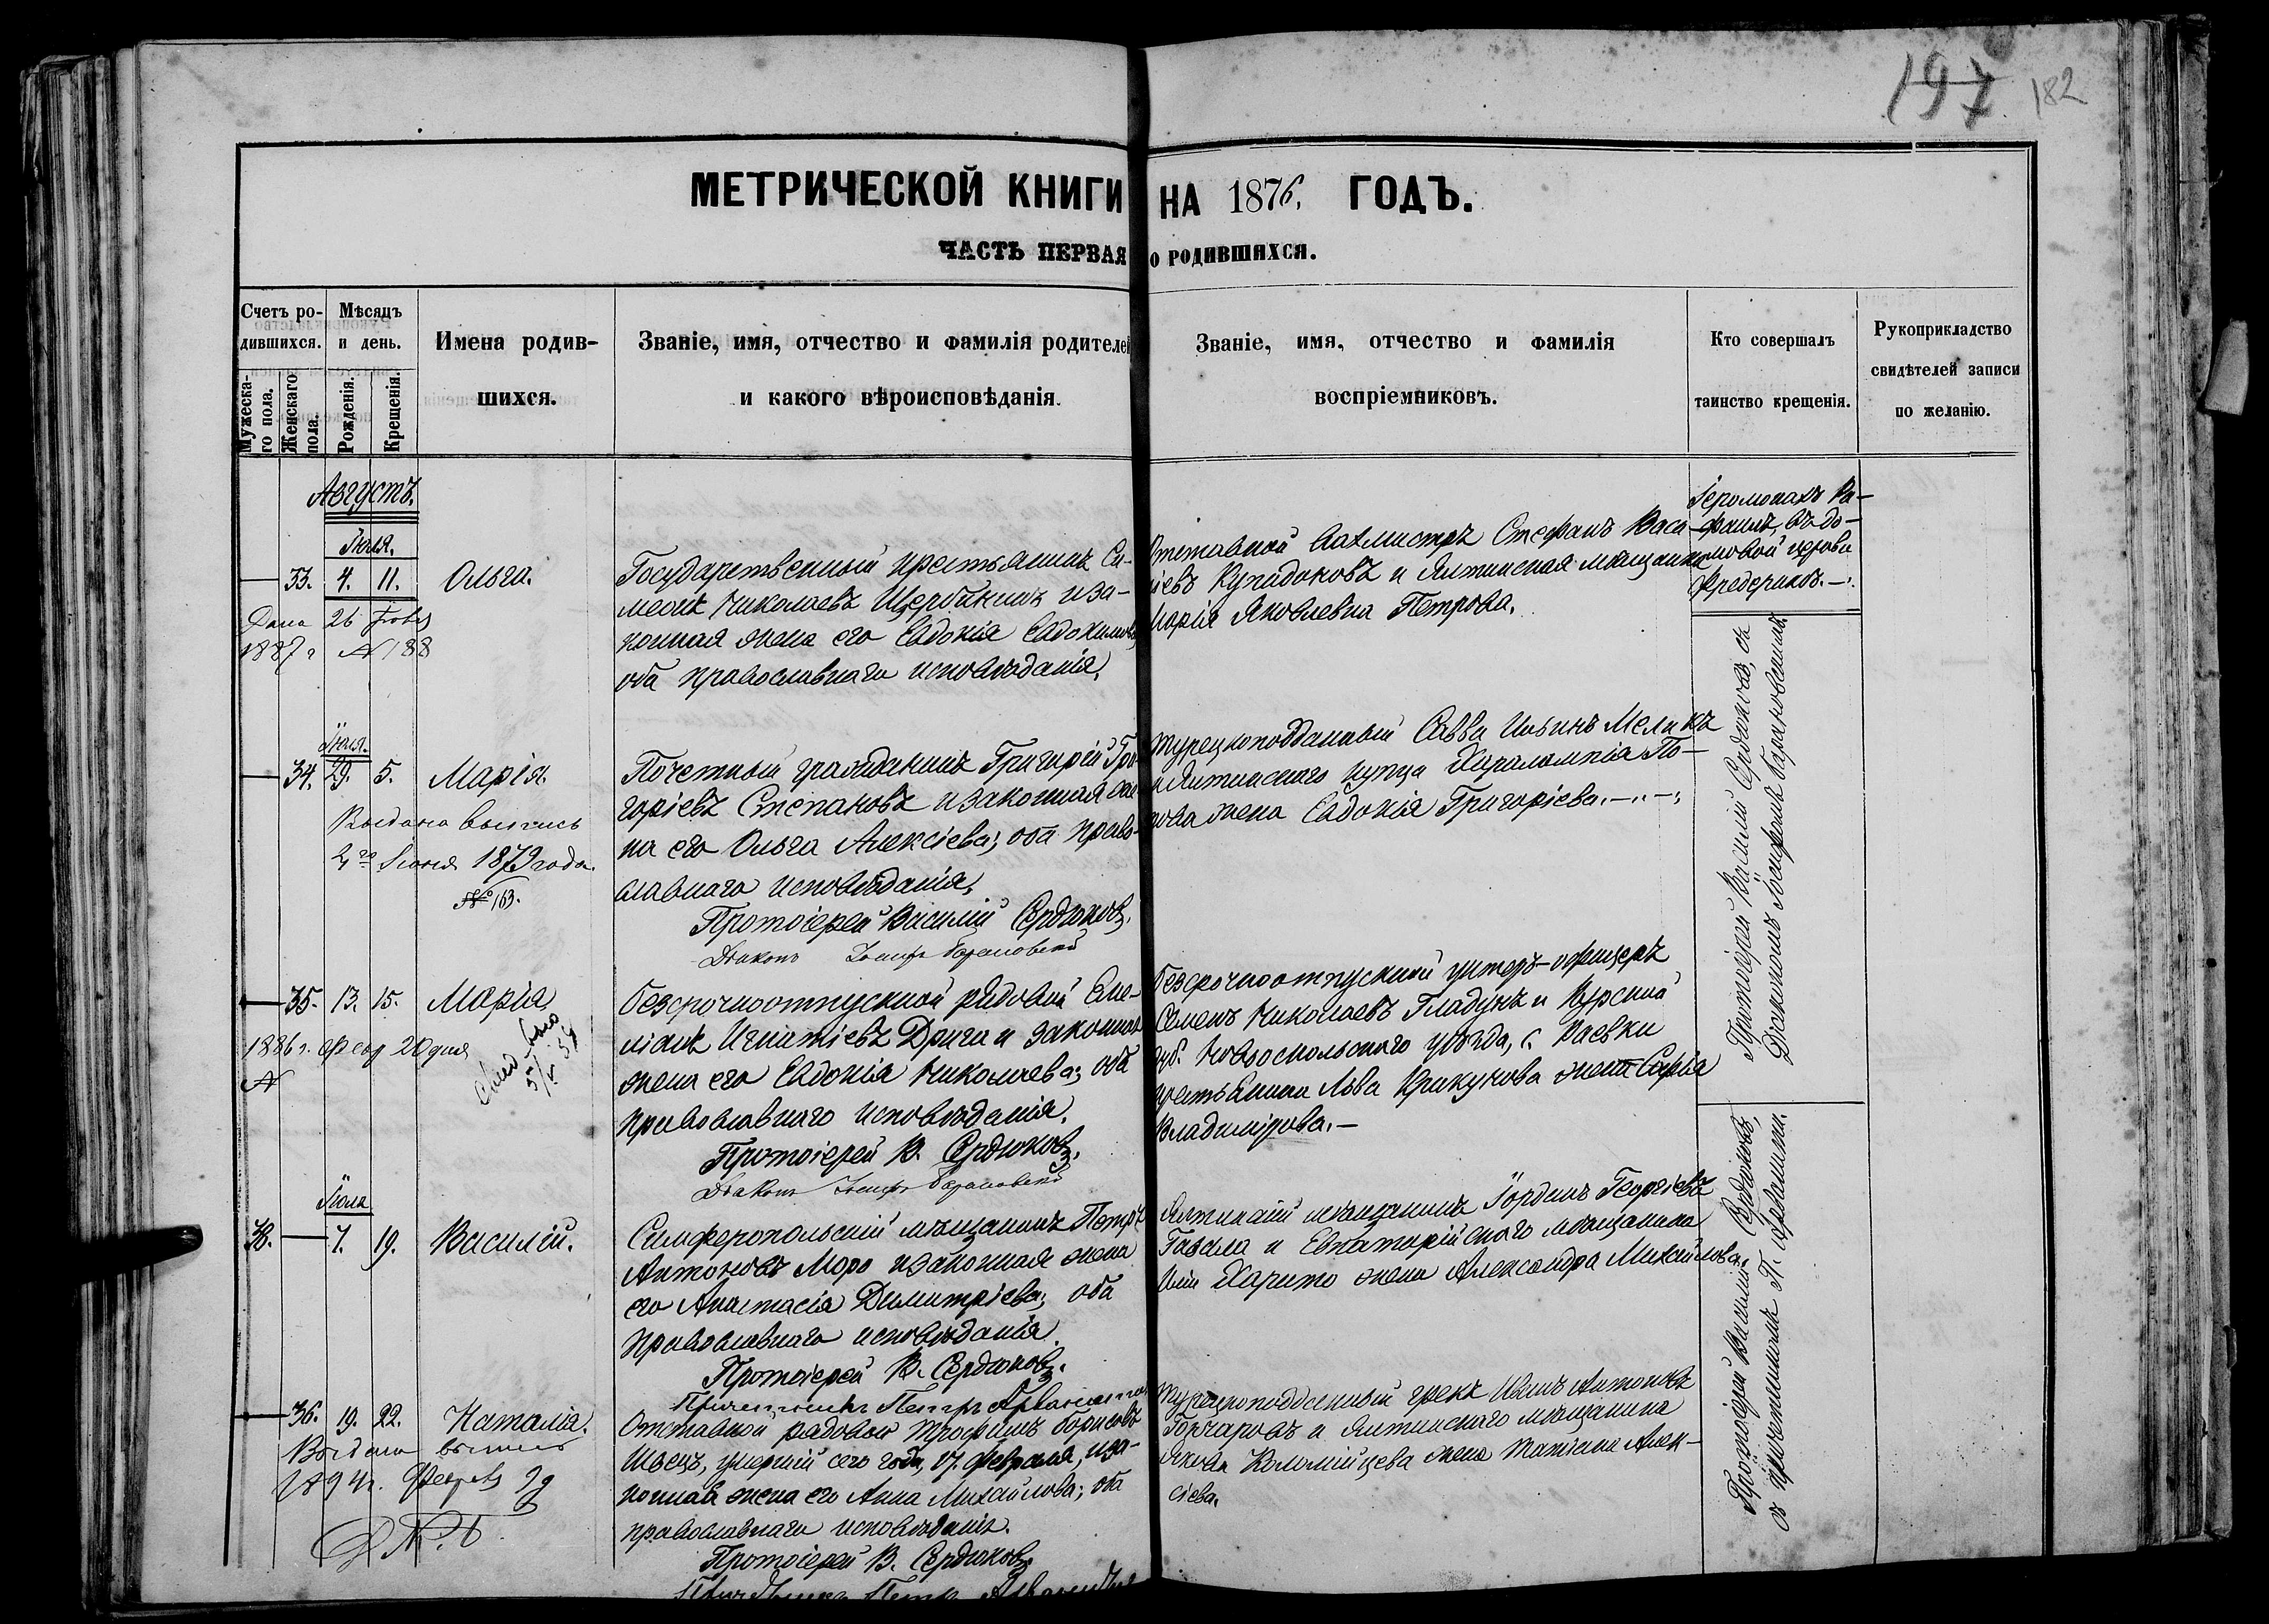 197 182
МЕТРИЧЕСКОЙ КНИГИ НА 1876. ГОДЪ.
ЧАСТЬ ПЕРВАЯ О РОДИВШИХСЯ.
Счетъ ро-
дившихся.
Мужеска-
го пола.
Женскаго
пола.
Мѣсяцъ
и день.
Рожденія.
Крещенія.
Имена родив-
шихся.
Званіе, имя, отчество и фамилія родителей
и какого вѣроисповѣданія.
Званіе, имя, отчество и фамилія
воспріемниковъ.
Кто совершалъ
таинство крещенія.
Рукоприкладство
свидѣтелей записи
по желанію.
Августъ.
Іюля.
33. 4. 11. Ольга.
Дана 26
1887 г № 188
Государственный крестьянинъ Си-
меонъ Николаевъ Щербининъ и за-
конная жена его Евдокія Евдокимова,
оба православнаго исповѣданія.
Отставной Вахмистръ Стефанъ Васи-
ліевъ Купадоковъ и Ялтинская мѣщанка
Марія Яковлевна Петрова.
Іеромонахъ Ра-
фаилъ, въ до-
мовой церкви
Фредерикъ.
Іюля.
34. 29. 5. Марія.
Выдана выпись
2го Іюня 1879 года.
№ 163.
Почетный гражданинъ Григорій Гри-
горіевъ Степановъ и законная же-
на его Ольга Алексіева; оба право-
славнаго исповѣданія.
Протоіерей Василій Сердюковъ.
Діаконъ Іосифъ Барановскій
Турецкоподданный Савва Ильинъ Меликъ
и Ялтинскаго купца Харалампія По-
пова жена Евдокія Григоріева.
Протоіерей Василій Сердюковъ, съ
Діакономъ Іосифомъ Барановскимъ.
35. 13. 15. Марія
1886 г. Февр 20 дня
№
Безсрочноотпускной рядовой Еме-
ліанъ Игнатіевъ Дрига и законная
жена его Евдокія Николаева; оба
православнаго исповѣданія.
Протоіерей В. Сердюковъ.
Діаконъ Іосифъ Барановскій
Безсрочноотпускной унтеръ-офицеръ
Семенъ Николаевъ Гладунъ и Курской
губ. Новооскольскаго уѣзда, с. Раевки
крестьянина Льва Крикунова жена Софія
Владимірова.
Іюля
38. 7. 19. Василій.
Симферопольскій мѣщанинъ Петръ
Антоновъ Моро и законная жена
его Анастасія Димитріева; оба
православнаго исповѣданія.
Протоіерей В. Сердюковъ.
Причетникъ Петръ
Ялтинскій мѣщанинъ Іорданъ Георгіевъ
Гавала и Евпаторійскаго мѣщанина
Иліи Харито жена Александра Михайлова.
Протоіерей Василій Сердюковъ,
съ причетникомъ П.
36. 19. 22. Наталія.
Выдана выпись
1894 г. Февр
№ 6
Отставной рядовой Трофимъ Борисовъ
Швецъ, умершій сего года, 17. Февраля, и за-
конная жена его Анна Михайлова; оба
православнаго исповѣданія.
Протоіерей В. Сердюковъ.
Турецкоподданный грекъ Иванъ Антоновъ
Гончаровъ и Ялтинскаго мѣщанина
Якова Коломійцева жена Татіана Алек-
сіева.